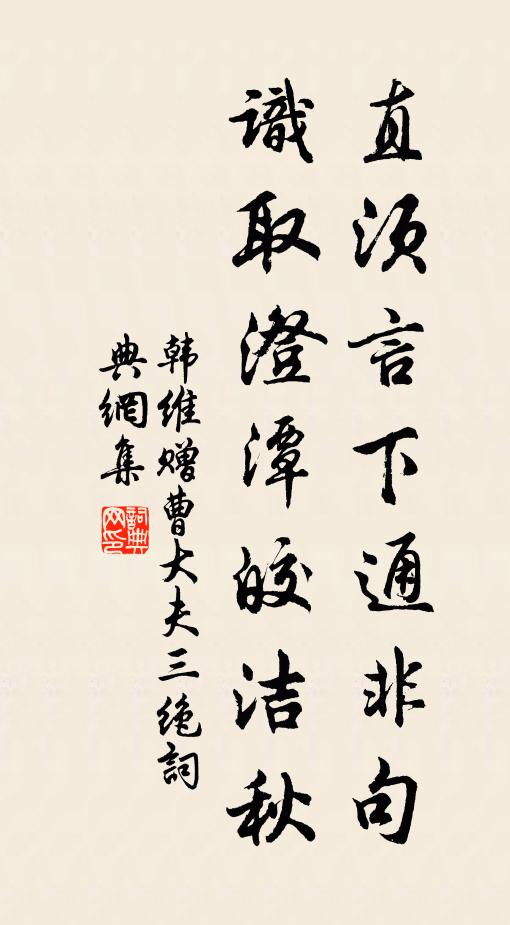 直须言下通非句
識取澄潭皎洁秋
韩维赠曹大夫三绝詞
典網集
詞典網印